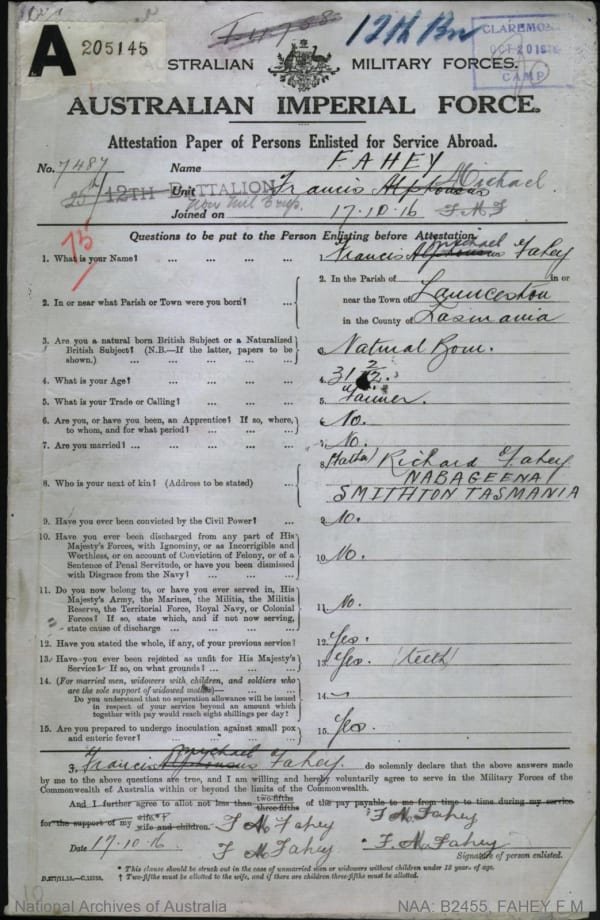 A 205145
12th Bn
CLAREMONT
OCT 20 1916
CAMP
AUSTRALIAN MILITARY FORCES.
AUSTRALIAN IMPERIAL FORCE.
Attestation Paper of Persons Enlisted for Service Abroad.
No. 7487 Name FAHEY
25th/12TH BATTALION Unit Francis Alphonsus Michael
Joined on 17.10.16 F.M.F
Questions to be put to the Person Enlisting before Attestation.
75
1. What is your Name? ... ... ... ... 1. Francis Alphonsus Michael Fahey
2. In or near what Parish or Town were you born? ... 2. In the Parish of in or
near the Town of Launceston
in the County of Tasmania
3. Are you a natural born British Subject or a Naturalized
British Subject? (N.B.—If the latter, papers to be
shown.) ... ... ... ... Natural Born.
4. What is your Age? ... ... ... ... 4. 31 2/12.
5. What is your Trade or Calling? ... ... ... 5. Farmer.
6. Are you, or have you been, an Apprentice? If so, where,
to whom, and for what period? ... ... ... No.
7. Are you married? ... ... ... ... No.
8. Who is your next of kin? (Address to be stated) ... 8. (Father) Richard Fahey
NABAGEENA
SMITHTON TASMANIA
9. Have you ever been convicted by the Civil Power? ... 9. No.
10. Have you ever been discharged from any part of His
Majesty's Forces, with Ignominy, or as Incorrigible and
Worthless, or on account of Conviction of Felony, or of a
Sentence of Penal Servitude, or have you been dismissed
with Disgrace from the Navy? ... ... ... 10. No.
11. Do you now belong to, or have you ever served in, His
Majesty's Army, the Marines, the Militia, the Militia
Reserve, the Territorial Force, Royal Navy, or Colonial
Forces? If so, state which, and if not now serving,
state cause of discharge ... ... ... ... 11. No.
12. Have you stated the whole, if any, of your previous service? 12. Yes.
13. Have you ever been rejected as unfit for His Majesty's
Service? If so, on what grounds? ... ... ... 13. Yes. (teeth)
14. (For married men, widowers with children, and soldiers who
are the sole support of widowed mother)—
Do you understand that no separation allowance will be issued
in respect of your service beyond an amount which
together with pay would reach eight shillings per day? 14.
15. Are you prepared to undergo inoculation against small pox
and enteric fever? ... ... ... ... 15. Yes.
I, Francis Alphonsus Michael Fahey do solemnly declare that the above answers made
by me to the above questions are true, and I am willing and hereby voluntarily agree to serve in the Military Forces of the
Commonwealth of Australia within or beyond the limits of the Commonwealth.
And I further agree to allot not less than two-fifths three-fifths of the pay payable to me from time to time during my service
for the support of my wife.*† wife and children. F M Fahey F M Fahey
Date 17.10.16 F M Fahey F. M. Fahey
Signature of person enlisted.
* This clause should be struck out in the case of unmarried men or widowers without children under 18 years of age.
† Two-fifths must be allotted to the wife, and if there are children three-fifths must be allotted.
National Archives of Australia
NAA: B2455, FAHEY F M